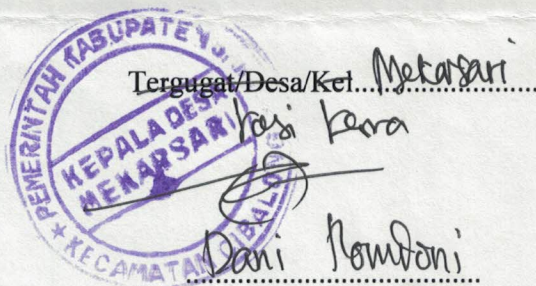 PEMERINTAH KABUPATEN
KEPALA DESA
MEKARSARI
KECAMATAN CIBALONG
Tergugat/Desa/Kel. Mekarsari
Kasi Kesra
Dani Romdoni